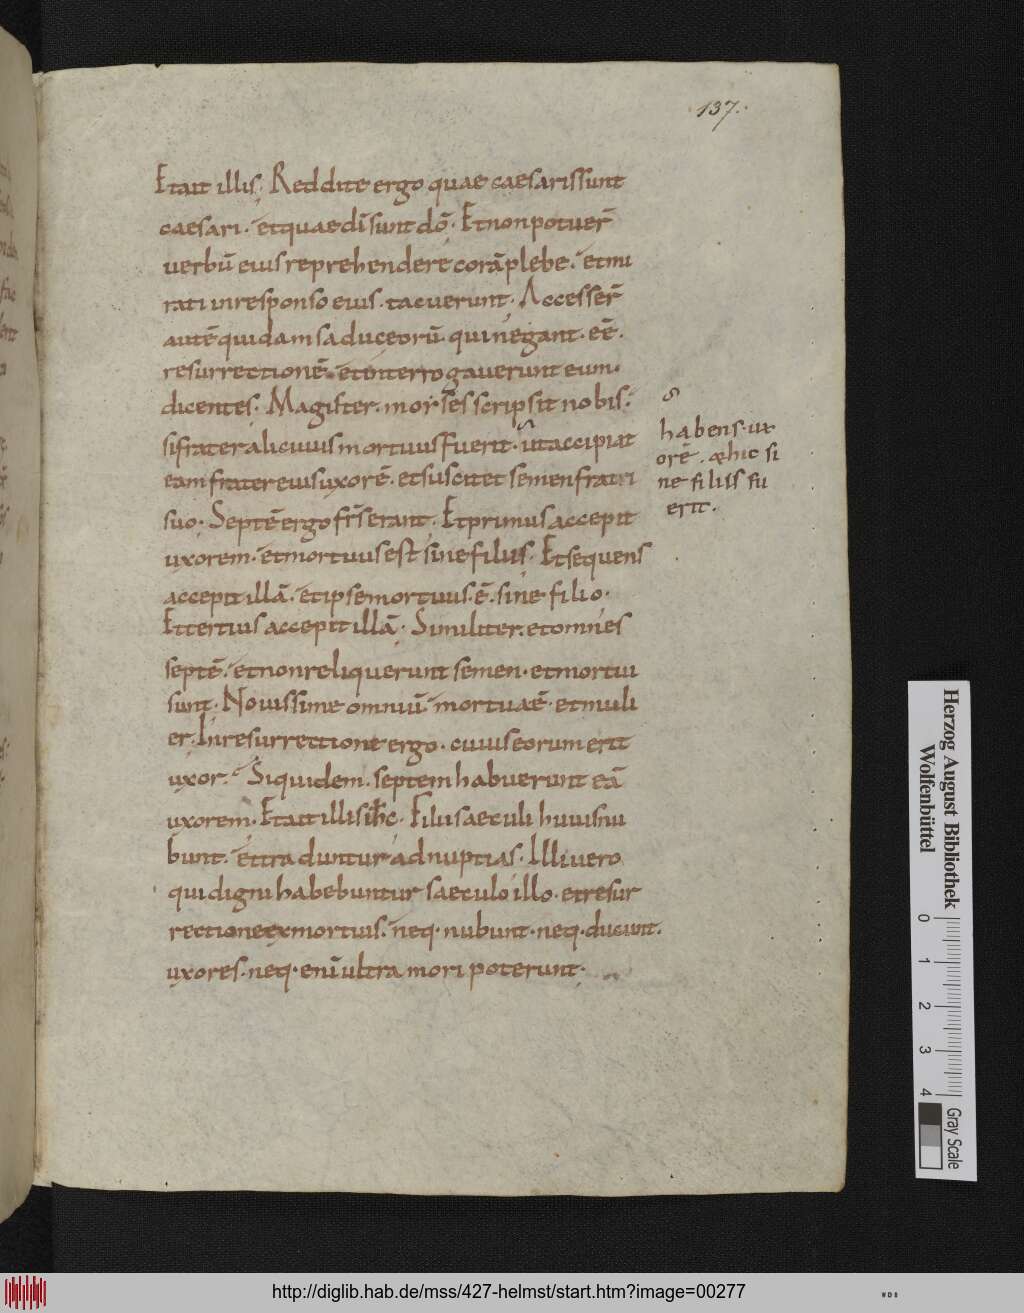 137.
Et ait illis; Reddite ergo quae caesaris sunt
caesari. et quae dī sunt dō. Et non potuer̄
verbū eius reprehendere corā plebe. et mi
rati in responso eius. tacuerunt. Accesser̄
autē quidam saduceorū. qui negant. eē.
resurrectionē. et interrogaverunt eum.
dicentes. Magister. morses scripsit nobis.
si frater alicuius mortuus fuerit. ut accipiat
eam frater eius uxorē. et suscitet semen fratri
suo. Septē ergo fr̄s erant. Et primus accepit
uxorem. et mortuus est sine filiis. Et sequens
accepit illā. et ipse mortuus. ē. sine filio.
Et tertius accepit illā. Similiter. et omnes
septē. et non reliquerunt semen. et mortui
sunt. Novissime omniū. mortua ē. et muli
er. In resurrectione ergo. cuius eorum erit
uxor. Siquidem. septem habuerunt eā
uxorem. Et ait illis ih̄c. Filii saeculi huius nu
bunt. et traduntur ad nuptias. Illi vero
qui digni habebuntur saeculo illo. et resur
rectione ex mortuis. neq. nubunt. neq. ducunt.
uxores. neq. enī ultra mori poterunt.
habens. ux
orē. & hic si
ne filiis fu
erit.
Herzog August Bibliothek
Wolfenbüttel
0 1 2 3 4
Gray Scale
http://diglib.hab.de/mss/427-helmst/start.htm?image=00277